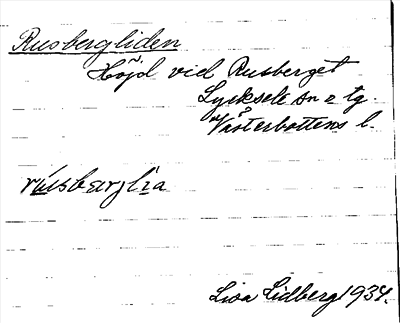 Rusbergliden
Höjd vid Rusberget
Lycksele sn o tg.
Västerbottens l.
rúusbærjlia
Lisa Lidberg 1934.